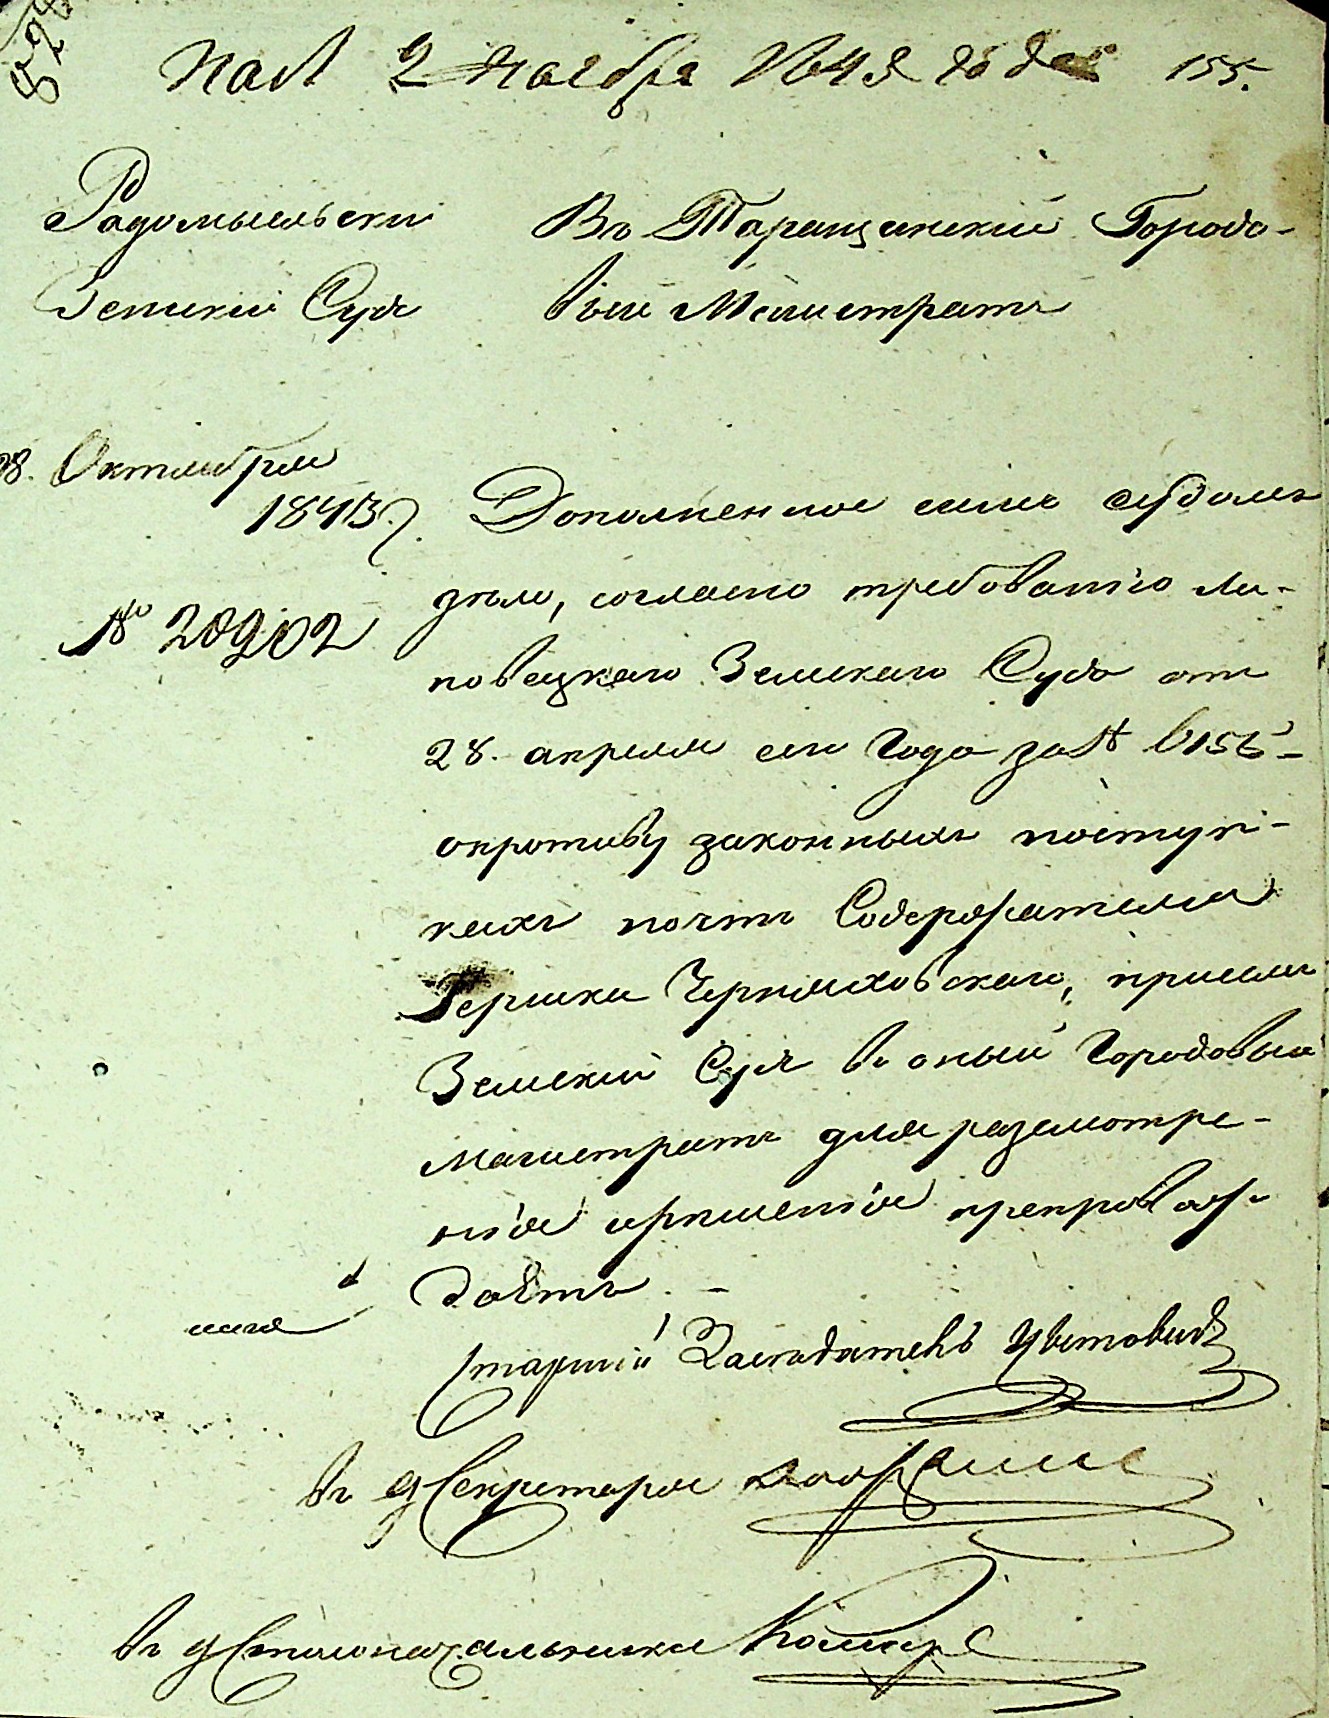 Пол 2 Ноября 1843 года 155.
Радомысльскій
Земскій Судъ
Въ Таращанскій Городо-
вый Магистратъ
28. Октября
1843 г.
№ 20902
Дополненное симъ судомъ
дѣло, согласно требованію Ли-
повецкаго Земскаго Суда отъ
28. апреля сего года за №
опротиву законныхъ поступ-
кахъ почтъ Содержателя
Гершка Черняховскаго, присемъ
Земскій Судъ въ оный Городовый
Магистратъ для разсмотре-
нія ирѣшенія препровож-
даетъ. -
Старшій Засѣдатель
въ д Секретаря
въ д Столоначальника